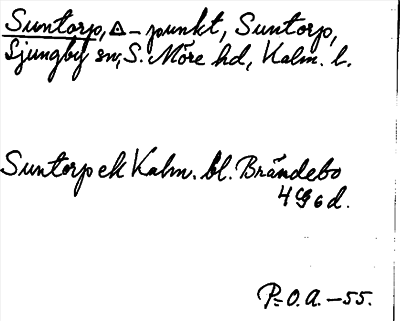 Suntorp, Δ-punkt, Suntorp,
Ljungby sn, S. Möre hd, Kalm. l.
Suntorp ek Kalm. bl. Brändebo
4 G 6 d.
P.-O.A. -55.